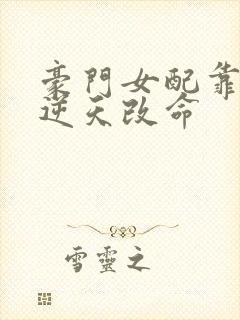 豪門女配靠
逆天改命
雪靈之